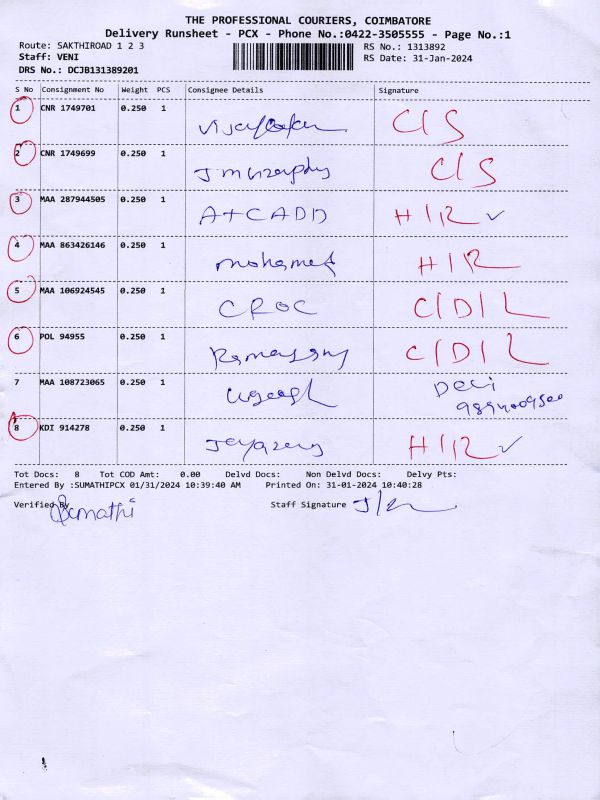 THE PROFESSIONAL COURIERS, COIMBATORE
Delivery Runsheet - PCX - Phone No.:0422-3505555 - Page No.:1
Route: SAKTHIROAD 1 2 3 RS No.: 1313892
Staff: VENI RS Date: 31-Jan-2024
DRS No.: DCJB131389201
S No Consignment No Weight PCS Consignee Details Signature
1 CNR 1749701 0.250 1 C/S
2 CNR 1749699 0.250 1 C/S
3 MAA 287944505 0.250 1 A+CADD H/R ✓
4 MAA 863426146 0.250 1 mohamed H/R
5 MAA 106924545 0.250 1 CROC C/D/L
6 POL 94955 0.250 1 C/D/L
7 MAA 108723065 0.250 1
8 KDI 914278 0.250 1 H/R ✓
Tot Docs: 8 Tot COD Amt: 0.00 Delvd Docs: Non Delvd Docs: Delvy Pts:
Entered By :SUMATHIPCX 01/31/2024 10:39:40 AM Printed On: 31-01-2024 10:40:28
Verified By Staff Signature